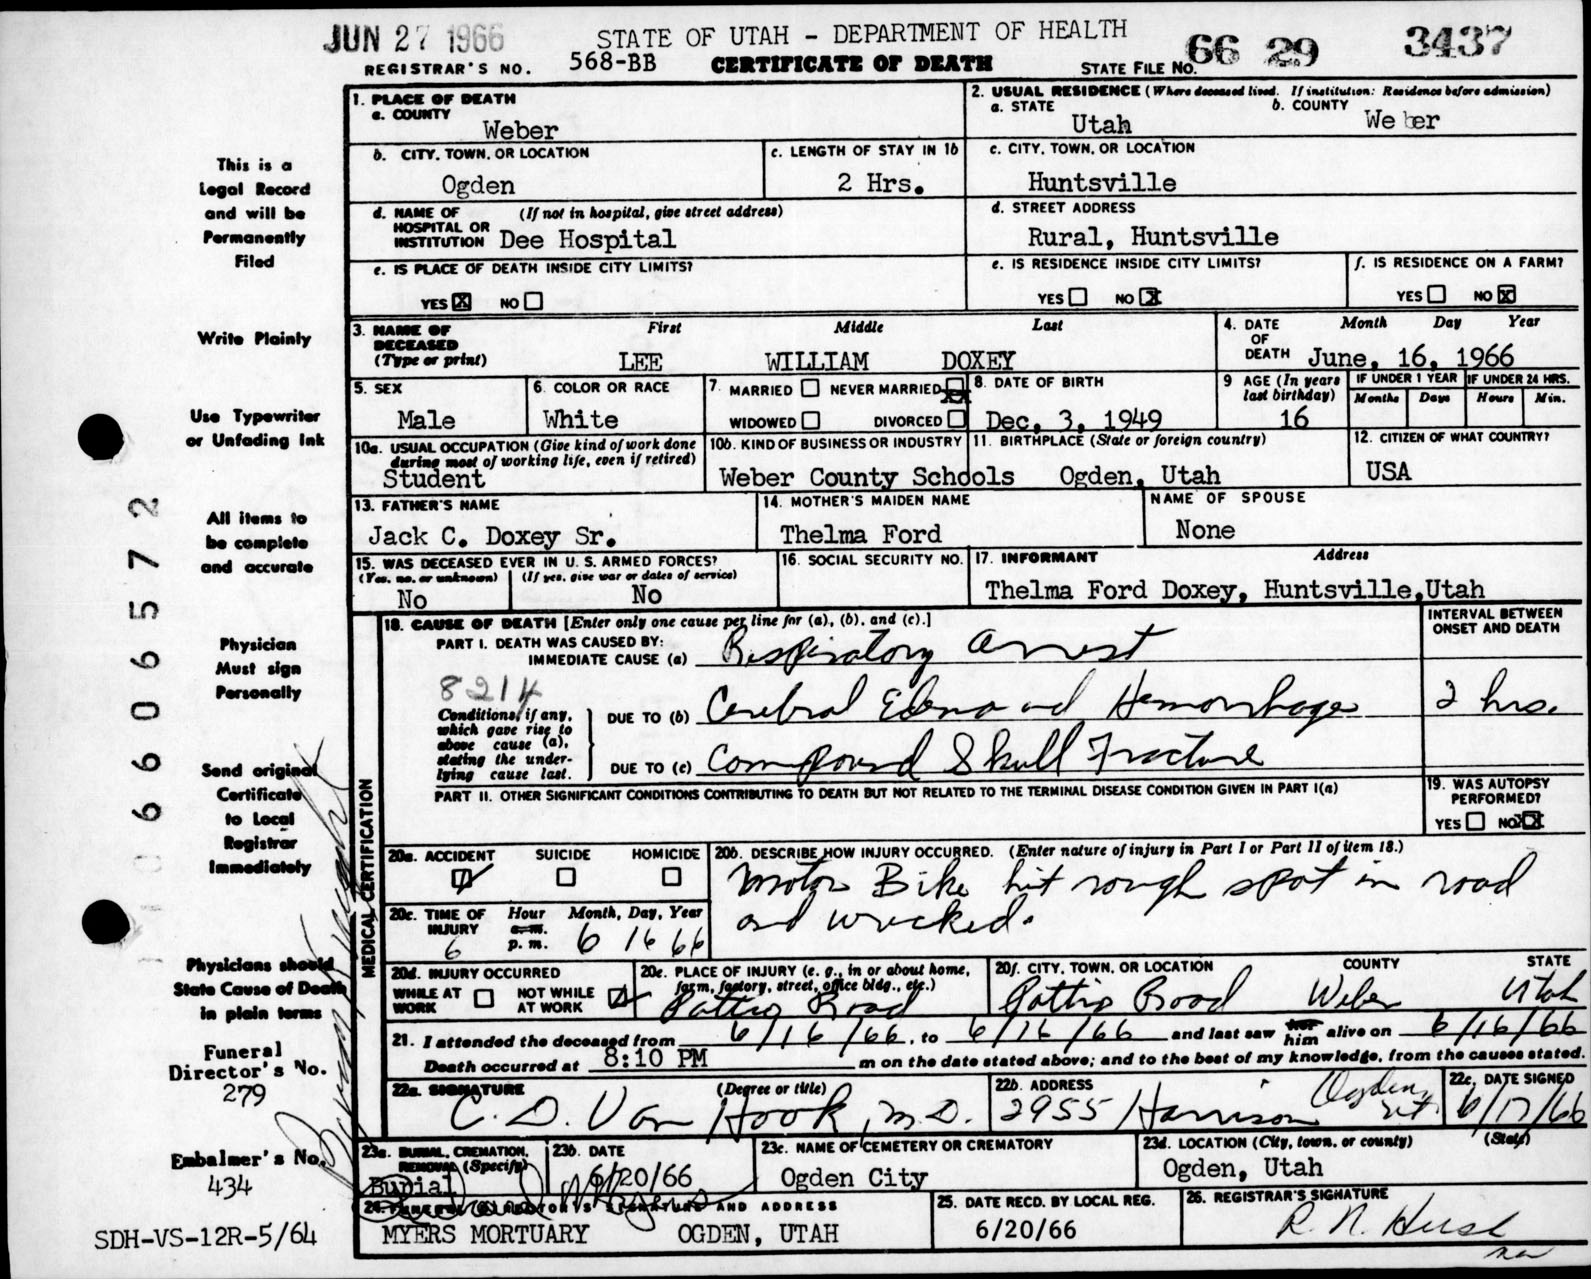 JUN 27 1966
STATE OF UTAH - DEPARTMENT OF HEALTH
REGISTRAR'S NO. 568-BB CERTIFICATE OF DEATH STATE FILE NO. 66 29 3437
1. PLACE OF DEATH
a. COUNTY
Weber
2. USUAL RESIDENCE (Where deceased lived. If institution: Residence before admission)
a. STATE b. COUNTY
Utah Weber
b. CITY, TOWN, OR LOCATION
Ogden
c. LENGTH OF STAY IN 1b
2 Hrs.
c. CITY, TOWN, OR LOCATION
Huntsville
d. NAME OF (If not in hospital, give street address)
HOSPITAL OR
INSTITUTION Dee Hospital
d. STREET ADDRESS
Rural, Huntsville
e. IS PLACE OF DEATH INSIDE CITY LIMITS?
YES X NO
e. IS RESIDENCE INSIDE CITY LIMITS?
YES NO X
f. IS RESIDENCE ON A FARM?
YES NO X
3. NAME OF DECEASED (Type or print)
First Middle Last
LEE WILLIAM DOXEY
4. DATE OF DEATH
Month Day Year
June, 16, 1966
5. SEX
Male
6. COLOR OR RACE
White
7. MARRIED NEVER MARRIED XX
WIDOWED DIVORCED
8. DATE OF BIRTH
Dec. 3, 1949
9 AGE (In years last birthday)
16
IF UNDER 1 YEAR
Months Days
IF UNDER 24 HRS.
Hours Min.
10a. USUAL OCCUPATION (Give kind of work done
during most of working life, even if retired)
Student
10b. KIND OF BUSINESS OR INDUSTRY
Weber County Schools
11. BIRTHPLACE (State or foreign country)
Ogden, Utah
12. CITIZEN OF WHAT COUNTRY?
USA
13. FATHER'S NAME
Jack C. Doxey Sr.
14. MOTHER'S MAIDEN NAME
Thelma Ford
NAME OF SPOUSE
None
15. WAS DECEASED EVER IN U. S. ARMED FORCES?
(Yes, no, or unknown) (If yes, give war or dates of service)
No No
16. SOCIAL SECURITY NO.
17. INFORMANT Address
Thelma Ford Doxey, Huntsville,Utah
MEDICAL CERTIFICATION
18. CAUSE OF DEATH [Enter only one cause per line for (a), (b), and (c).]
INTERVAL BETWEEN
ONSET AND DEATH
PART I. DEATH WAS CAUSED BY:
IMMEDIATE CAUSE (a) Respiratory arrest
8214
Conditions, if any,
which gave rise to
above cause (a),
stating the under-
lying cause last.
DUE TO (b) Cerebral Edema and Hemorrhage 2 hrs.
DUE TO (c) Compound Skull Fracture
PART II. OTHER SIGNIFICANT CONDITIONS CONTRIBUTING TO DEATH BUT NOT RELATED TO THE TERMINAL DISEASE CONDITION GIVEN IN PART I(a)
19. WAS AUTOPSY
PERFORMED?
YES NO X
20a. ACCIDENT SUICIDE HOMICIDE
20b. DESCRIBE HOW INJURY OCCURRED. (Enter nature of injury in Part I or Part II of item 18.)
Motor Bike hit rough spot in road
and wrecked.
20c. TIME OF INJURY
Hour Month, Day, Year
a.m.
6 p.m. 6 16 66
20d. INJURY OCCURRED
WHILE AT WORK NOT WHILE AT WORK
20e. PLACE OF INJURY (e. g., in or about home,
farm, factory, street, office bldg., etc.)
Road
20f. CITY, TOWN, OR LOCATION COUNTY STATE
Road Weber Utah
21. I attended the deceased from 6/16/66, to 6/16/66 and last saw her him alive on 6/16/66
Death occurred at 8:10 PM m on the date stated above; and to the best of my knowledge, from the causes stated.
22a. SIGNATURE (Degree or title)
C. D. Van Hook, M.D.
22b. ADDRESS
2955 Harrison Ogden, Ut.
22c. DATE SIGNED
6/17/66
23a. BURIAL, CREMATION, REMOVAL (Specify)
Burial
23b. DATE
6/20/66
23c. NAME OF CEMETERY OR CREMATORY
Ogden City
23d. LOCATION (City, town, or county) (State)
Ogden, Utah
24. FUNERAL DIRECTOR'S SIGNATURE AND ADDRESS
MYERS MORTUARY OGDEN, UTAH
25. DATE RECD. BY LOCAL REG.
6/20/66
26. REGISTRAR'S SIGNATURE
R. N.
This is a
Legal Record
and will be
Permanently
Filed
Write Plainly
Use Typewriter
or Unfading Ink
All items to
be complete
and accurate
Physician
Must sign
Personally
Send original
Certificate
to Local
Registrar
Immediately
Physicians should
State Cause of Death
in plain terms
Funeral
Director's No.
279
Embalmer's No.
434
SDH-VS-12R-5/64
06606572